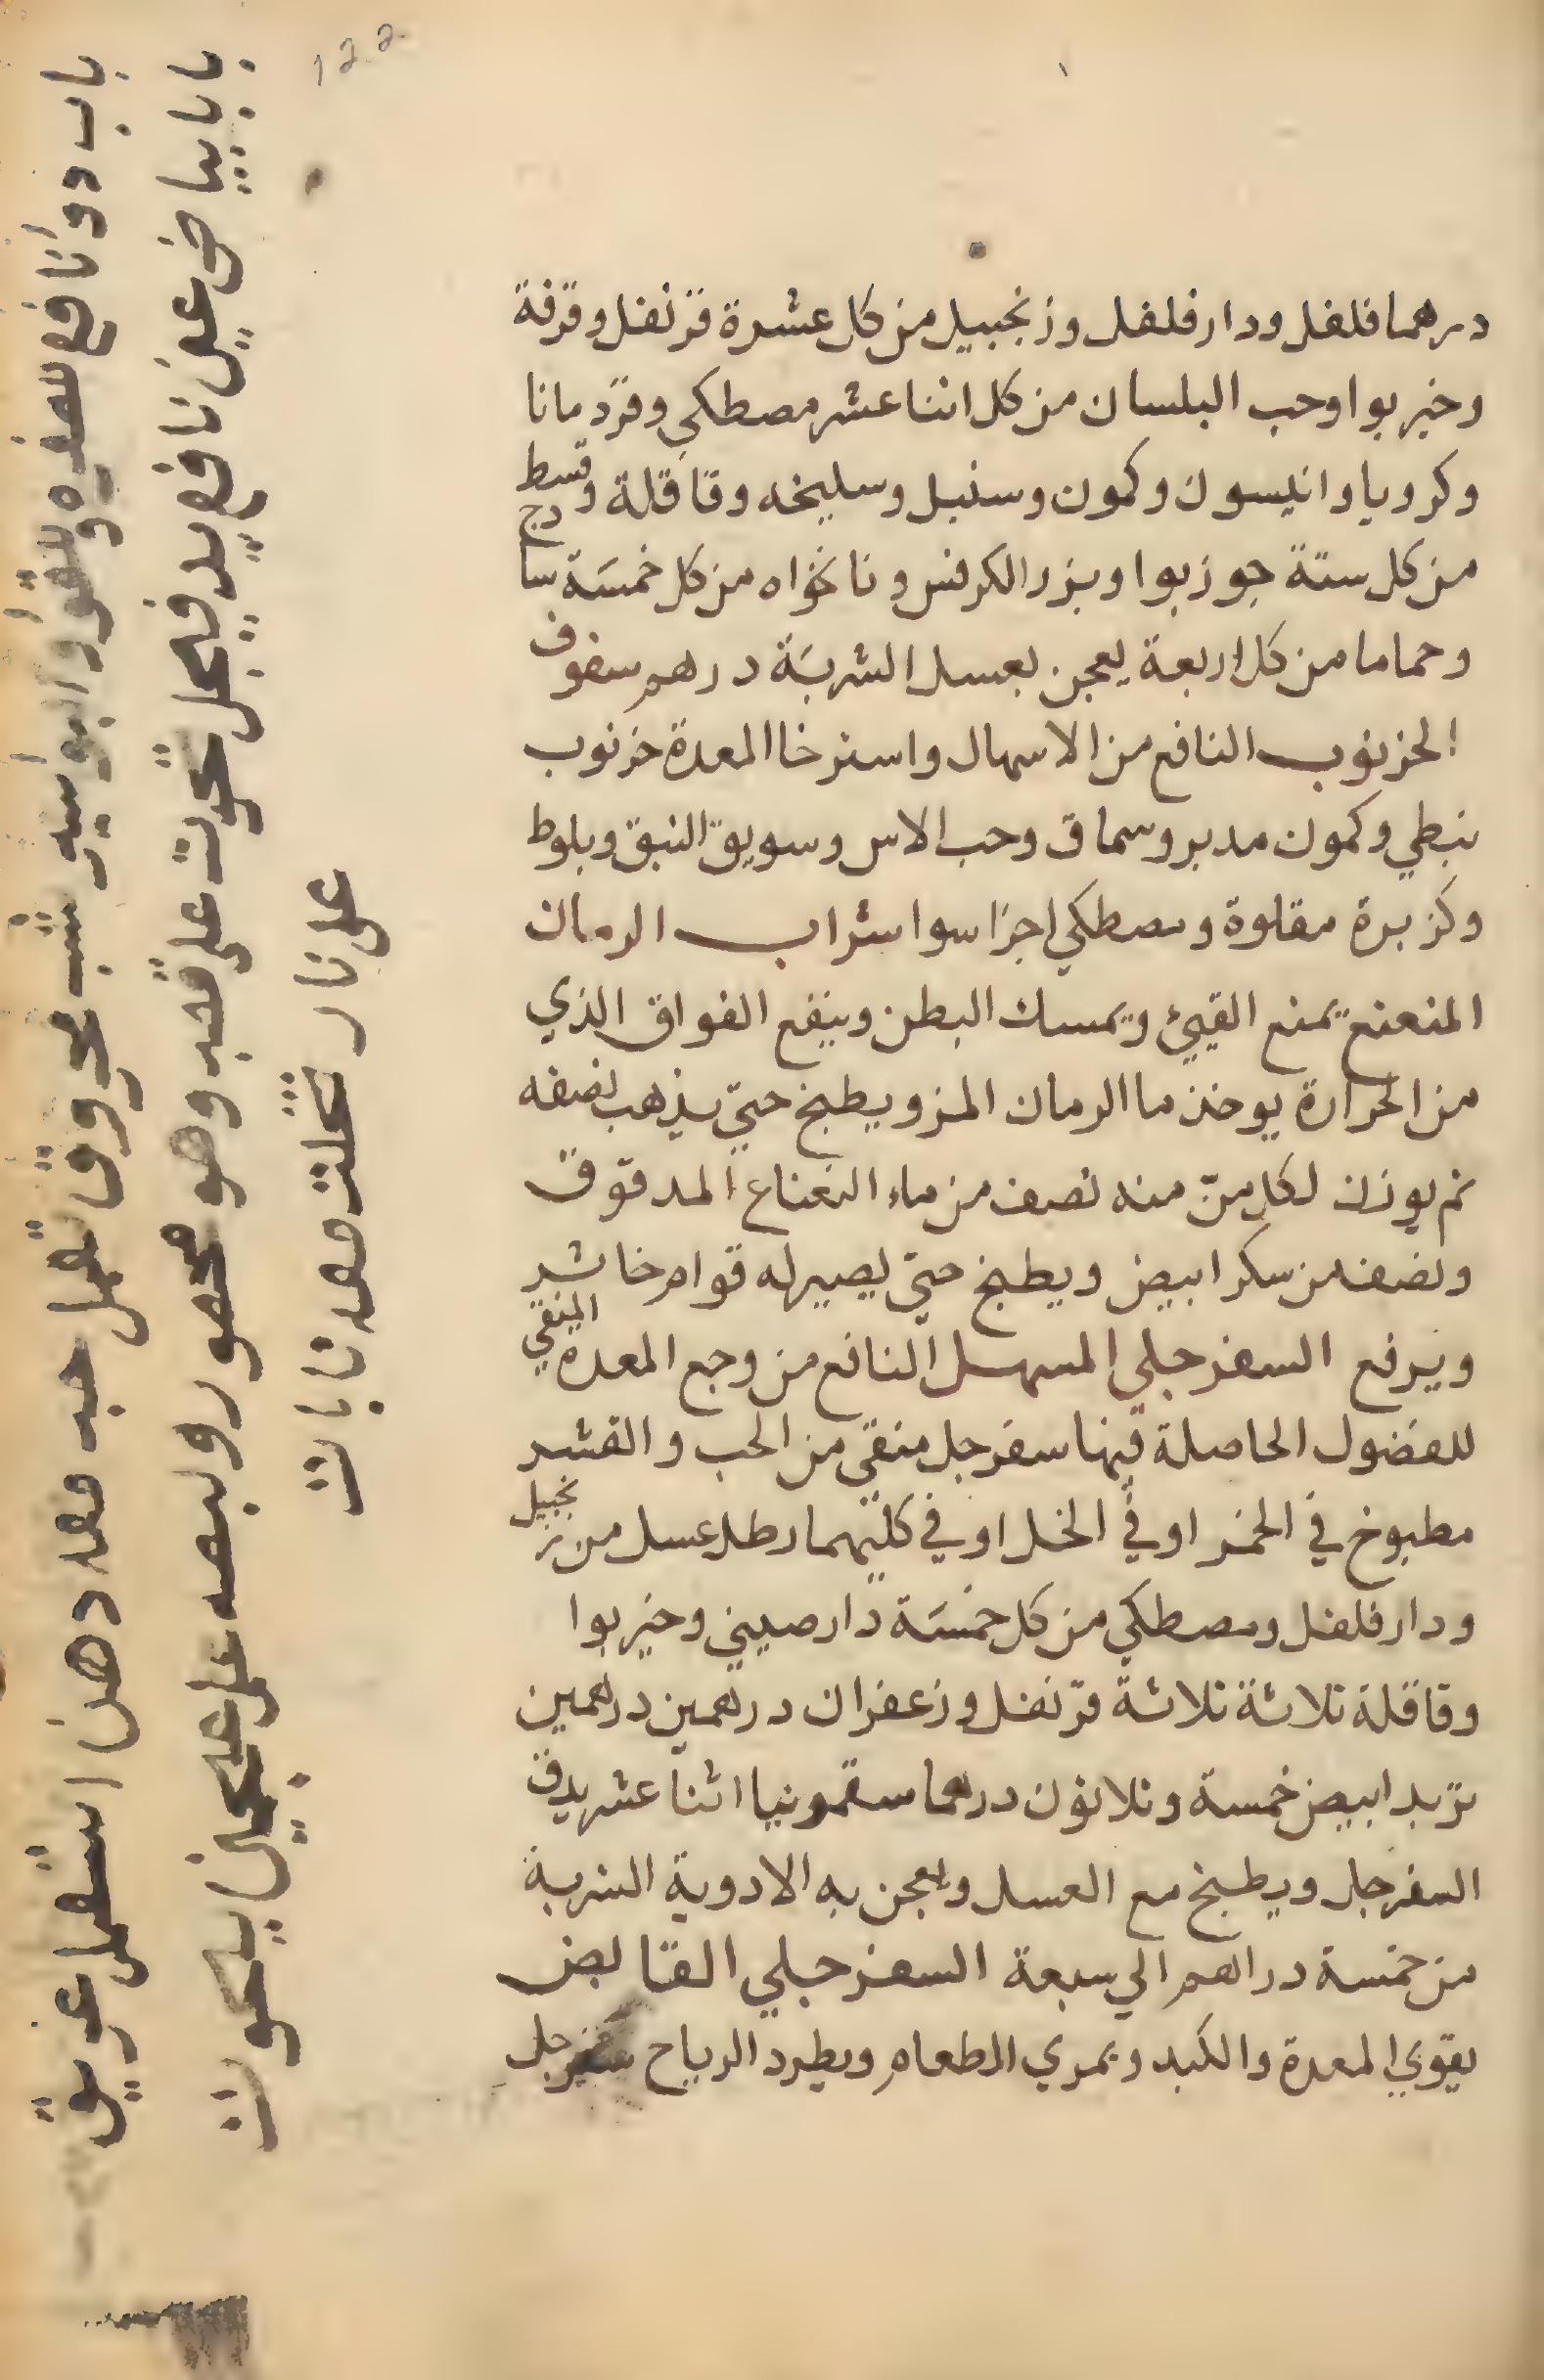 درهما فلفل ودار فلفل وزنجبيل من كل عشرة قرنفل وقرفة
وخير بوا وحب البلسان من كل اثنا عشر مصطكي وقردمانا
وكرويا وانيسون وكمون وسنبل وسليخه وقاقلة وقسط
من كل ستة جوزبوا وبزر الكرفس ونانخواه من كل خمسة سادج
وحماما من كل اربعة يعجن بعسل الشربة درهم سفوف
الخرنوب النافع من الاسهال واسترخا المعدة خرنوب
نبطي وكمون مدبر وسماق وحب الاس وسويق النبق وبلوط
وكزبرة مقلوة ومصطكي اجزا سوا شراب الرمان
المنعنع يمنع القيئ ويمسك البطن وينفع الفواق الذي
من الحرارة يوخذ ما الرمان المز ويطبخ حتي يذهب نصفه
ثم يوزن لكل منّ منه نصف من ماء النعناع المدقوق
ونصف من سكر ابيض ويطبخ حتي يصير له قوام خاثر
ويرفع السفرجلي المسهل النافع من وجع المعدة المنقي
للفضول الحاصلة فيها سفرجل منقي من الحب والقشر
مطبوخ في الخمر او في الخل او في كليهما رطل عسل من زنجبيل
ودار فلفل ومصطكي من كل خمسة دارصيني وخير بوا
وقاقلة ثلاثة ثلاثة قرنفل وزعفران درهمين درهمين
تربد ابيض خمسة وثلاثون درهما سقمونيا اثنا عشر يدق
السفرجل ويطبخ مع العسل ويعجن به الادوية الشربة
من خمسة دراهم الي سبعة السفرجلي القابض
يقوي المعدة والكبد ويمري الطعام ويطرد الرياح سفرجل
باب دوا نافع والبواسير شب محروق تعمل حبه معه دهن
باب بياض عين نافع وهو محصور
علي نار نبات
122